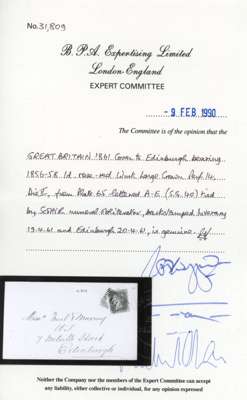 No. 31,809
B. P. A. Expertising Limited
London-England
EXPERT COMMITTEE
- 9 FEB 1990
The Committee is of the opinion that the
GREAT BRITAIN 1861 Cover to Edinburgh bearing
1856-58 1d. rose-red Large Crown Perf 14,
Die II, from Plate 65 lettered A-E (S.G. 40) tied
by numeral obliterator, backstamped Inverary
19.4.61 and Edinburgh 20.4.61, is genuine.
Edinburgh
Neither the Company nor the members of the Expert Committee can accept
any liability, either collective or individual, for any opinion expressed